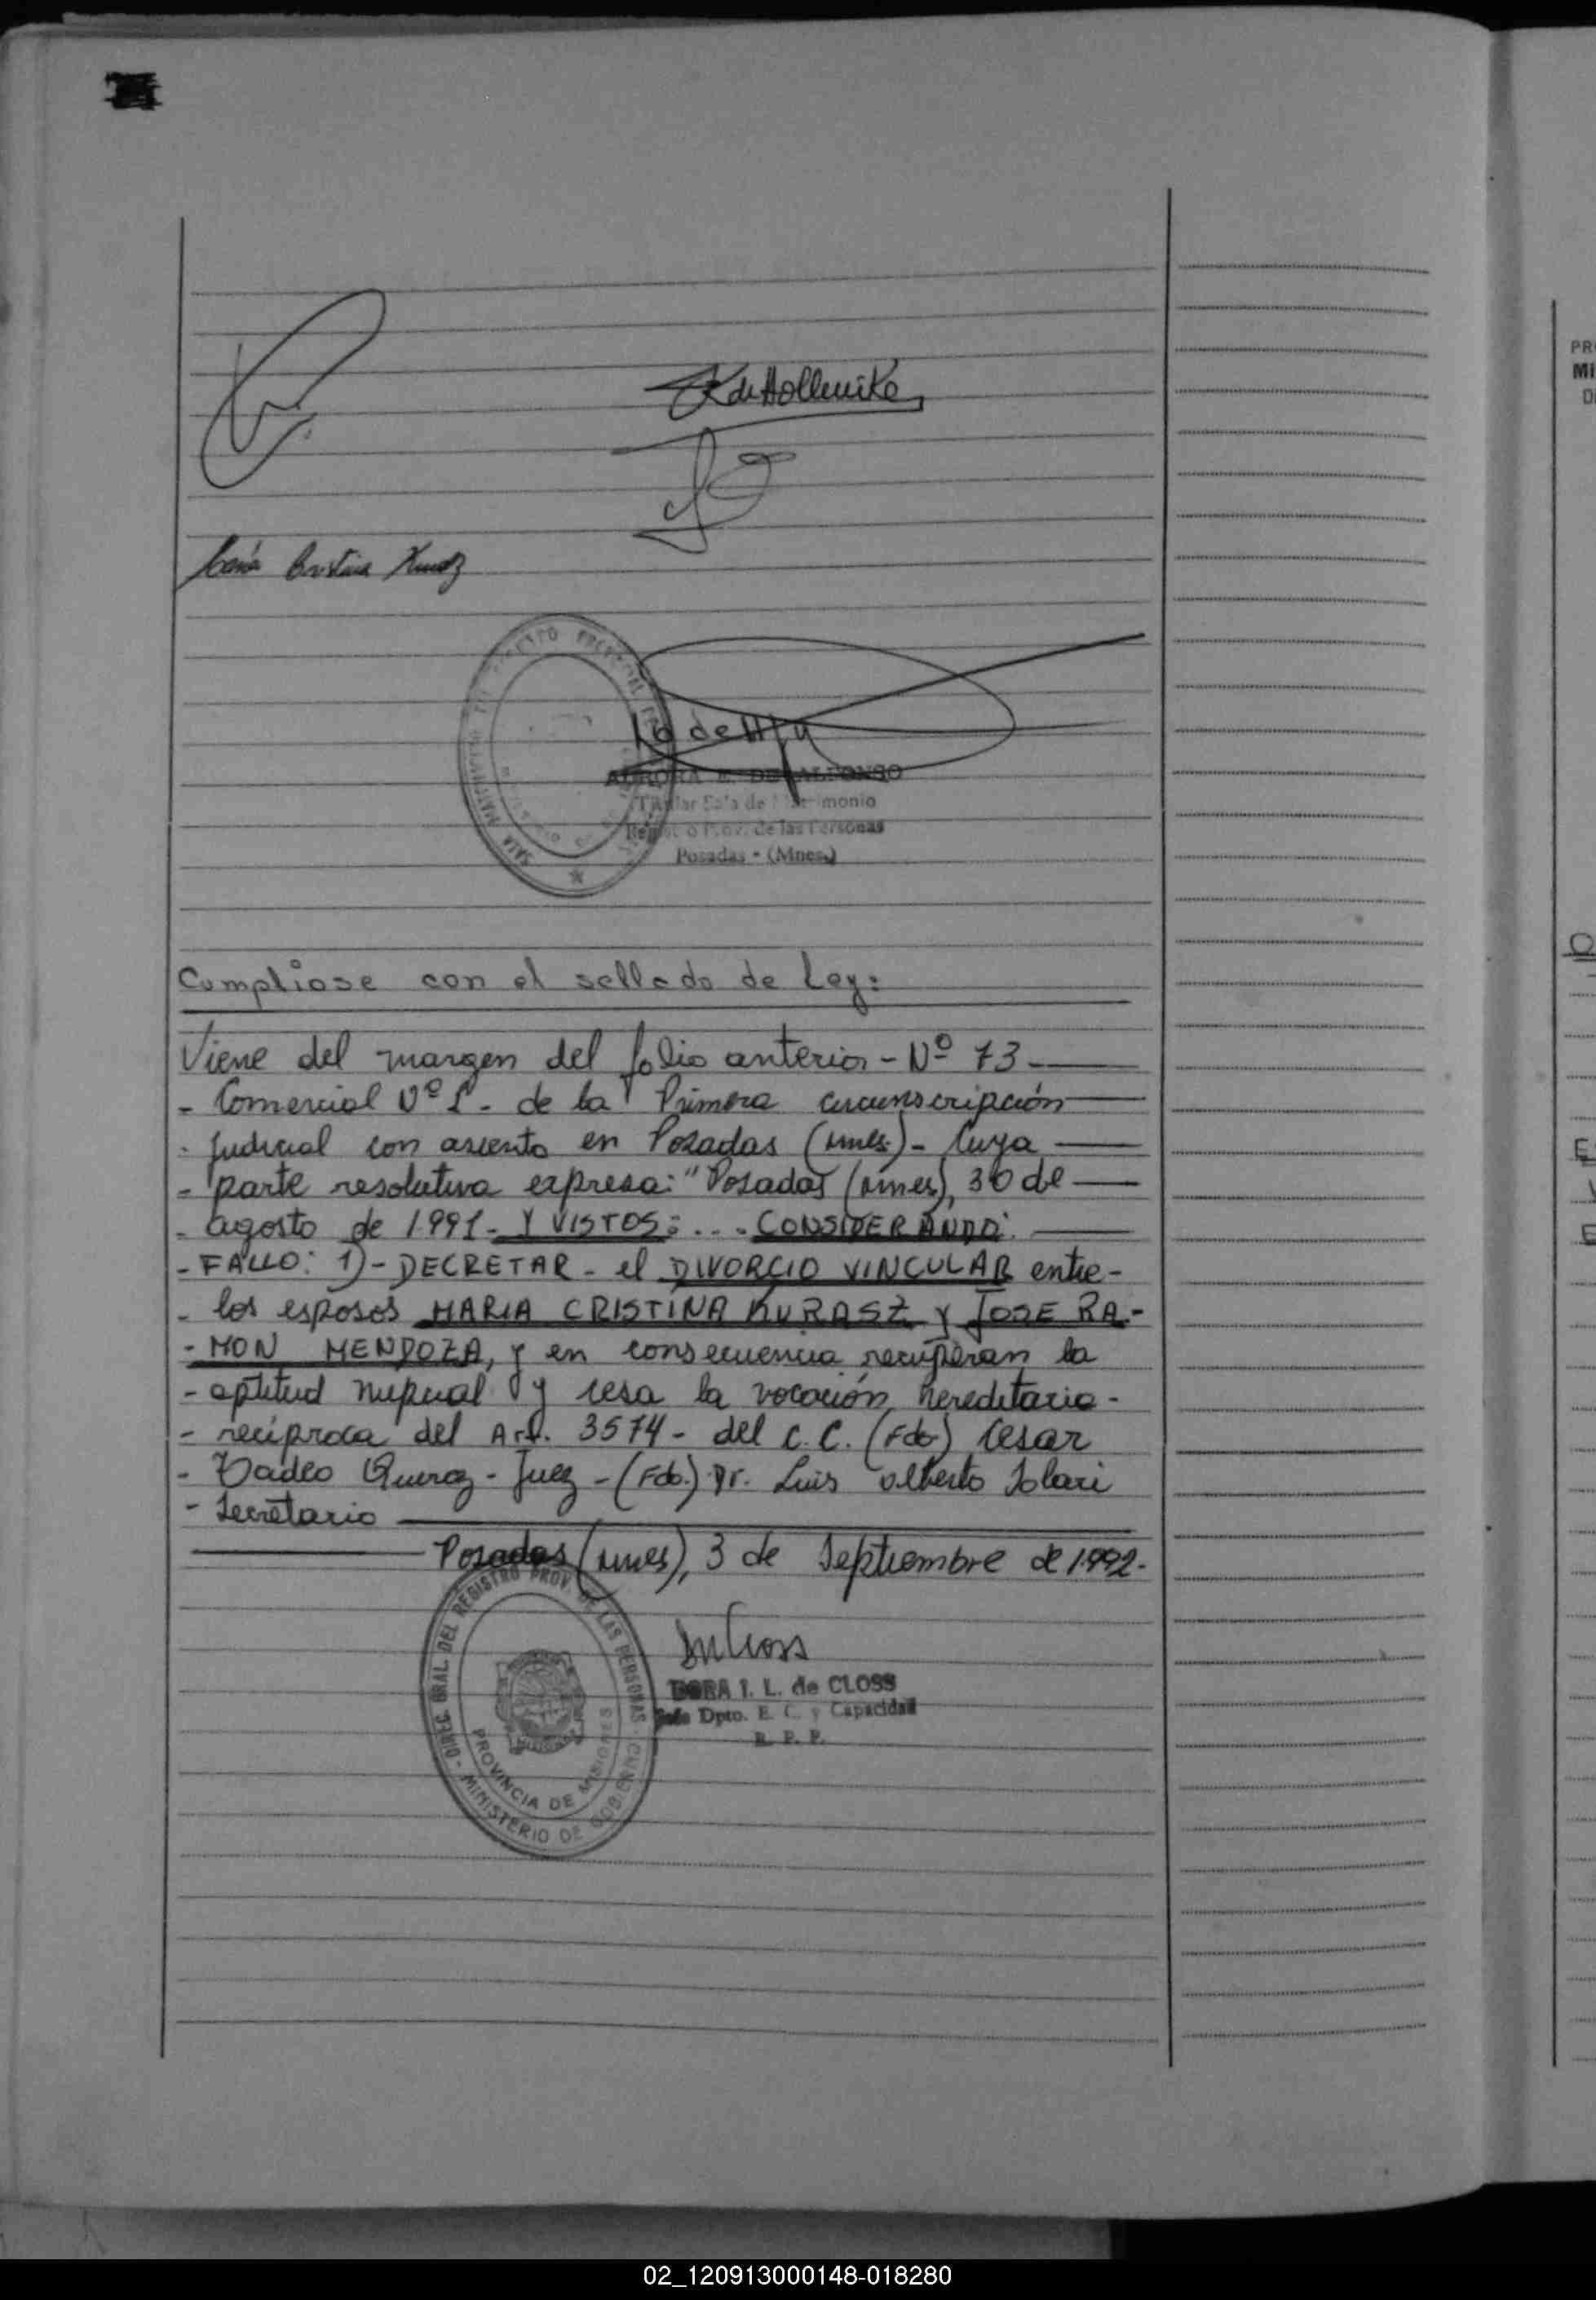 K de Hollenike
María Cristina Kurasz
SALA MATRIMONIO
AURORA E. DE ALFONSO
Titular Sala de Matrimonio
Regist o Prov. de las Personas
Posadas - (Mnes.)
Cumpliose con el sellado de Ley:
Viene del margen del folio anterior - Nº 73
- Comercial Nº 1 - de la Primera circunscripción
- Judicial con asiento en Posadas (Mnes.) - Cuya
- parte resolutiva expresa: "Posadas (Mnes), 30 de
- agosto de 1.991 - Y VISTOS: ... CONSIDERANDO:
- FALLO: 1) - DECRETAR - el DIVORCIO VINCULAR entre -
- los esposos MARIA CRISTINA KURASZ y JOSE RA -
- MON MENDOZA, y en consecuencia recuperan la
- aptitud nupcial y cesa la vocación hereditaria -
- recíproca del Art. 3574 - del C.C. (Fdo) Cesar
- Tadeo Queroz - Juez - (Fdo.) Dr. Luis Alberto Solari
- Secretario
Posadas (Mnes), 3 de Septiembre de 1.992 -
DIREC. GRAL. DEL REGISTRO PROV. DE LAS PERSONAS - MINISTERIO DE GOBIERNO
PROVINCIA DE MISIONES
DORA I. L. de CLOSS
Jefe Dpto. E. C. y Capacidad
R. P. P.
PR
MI
D
02_120913000148-018280